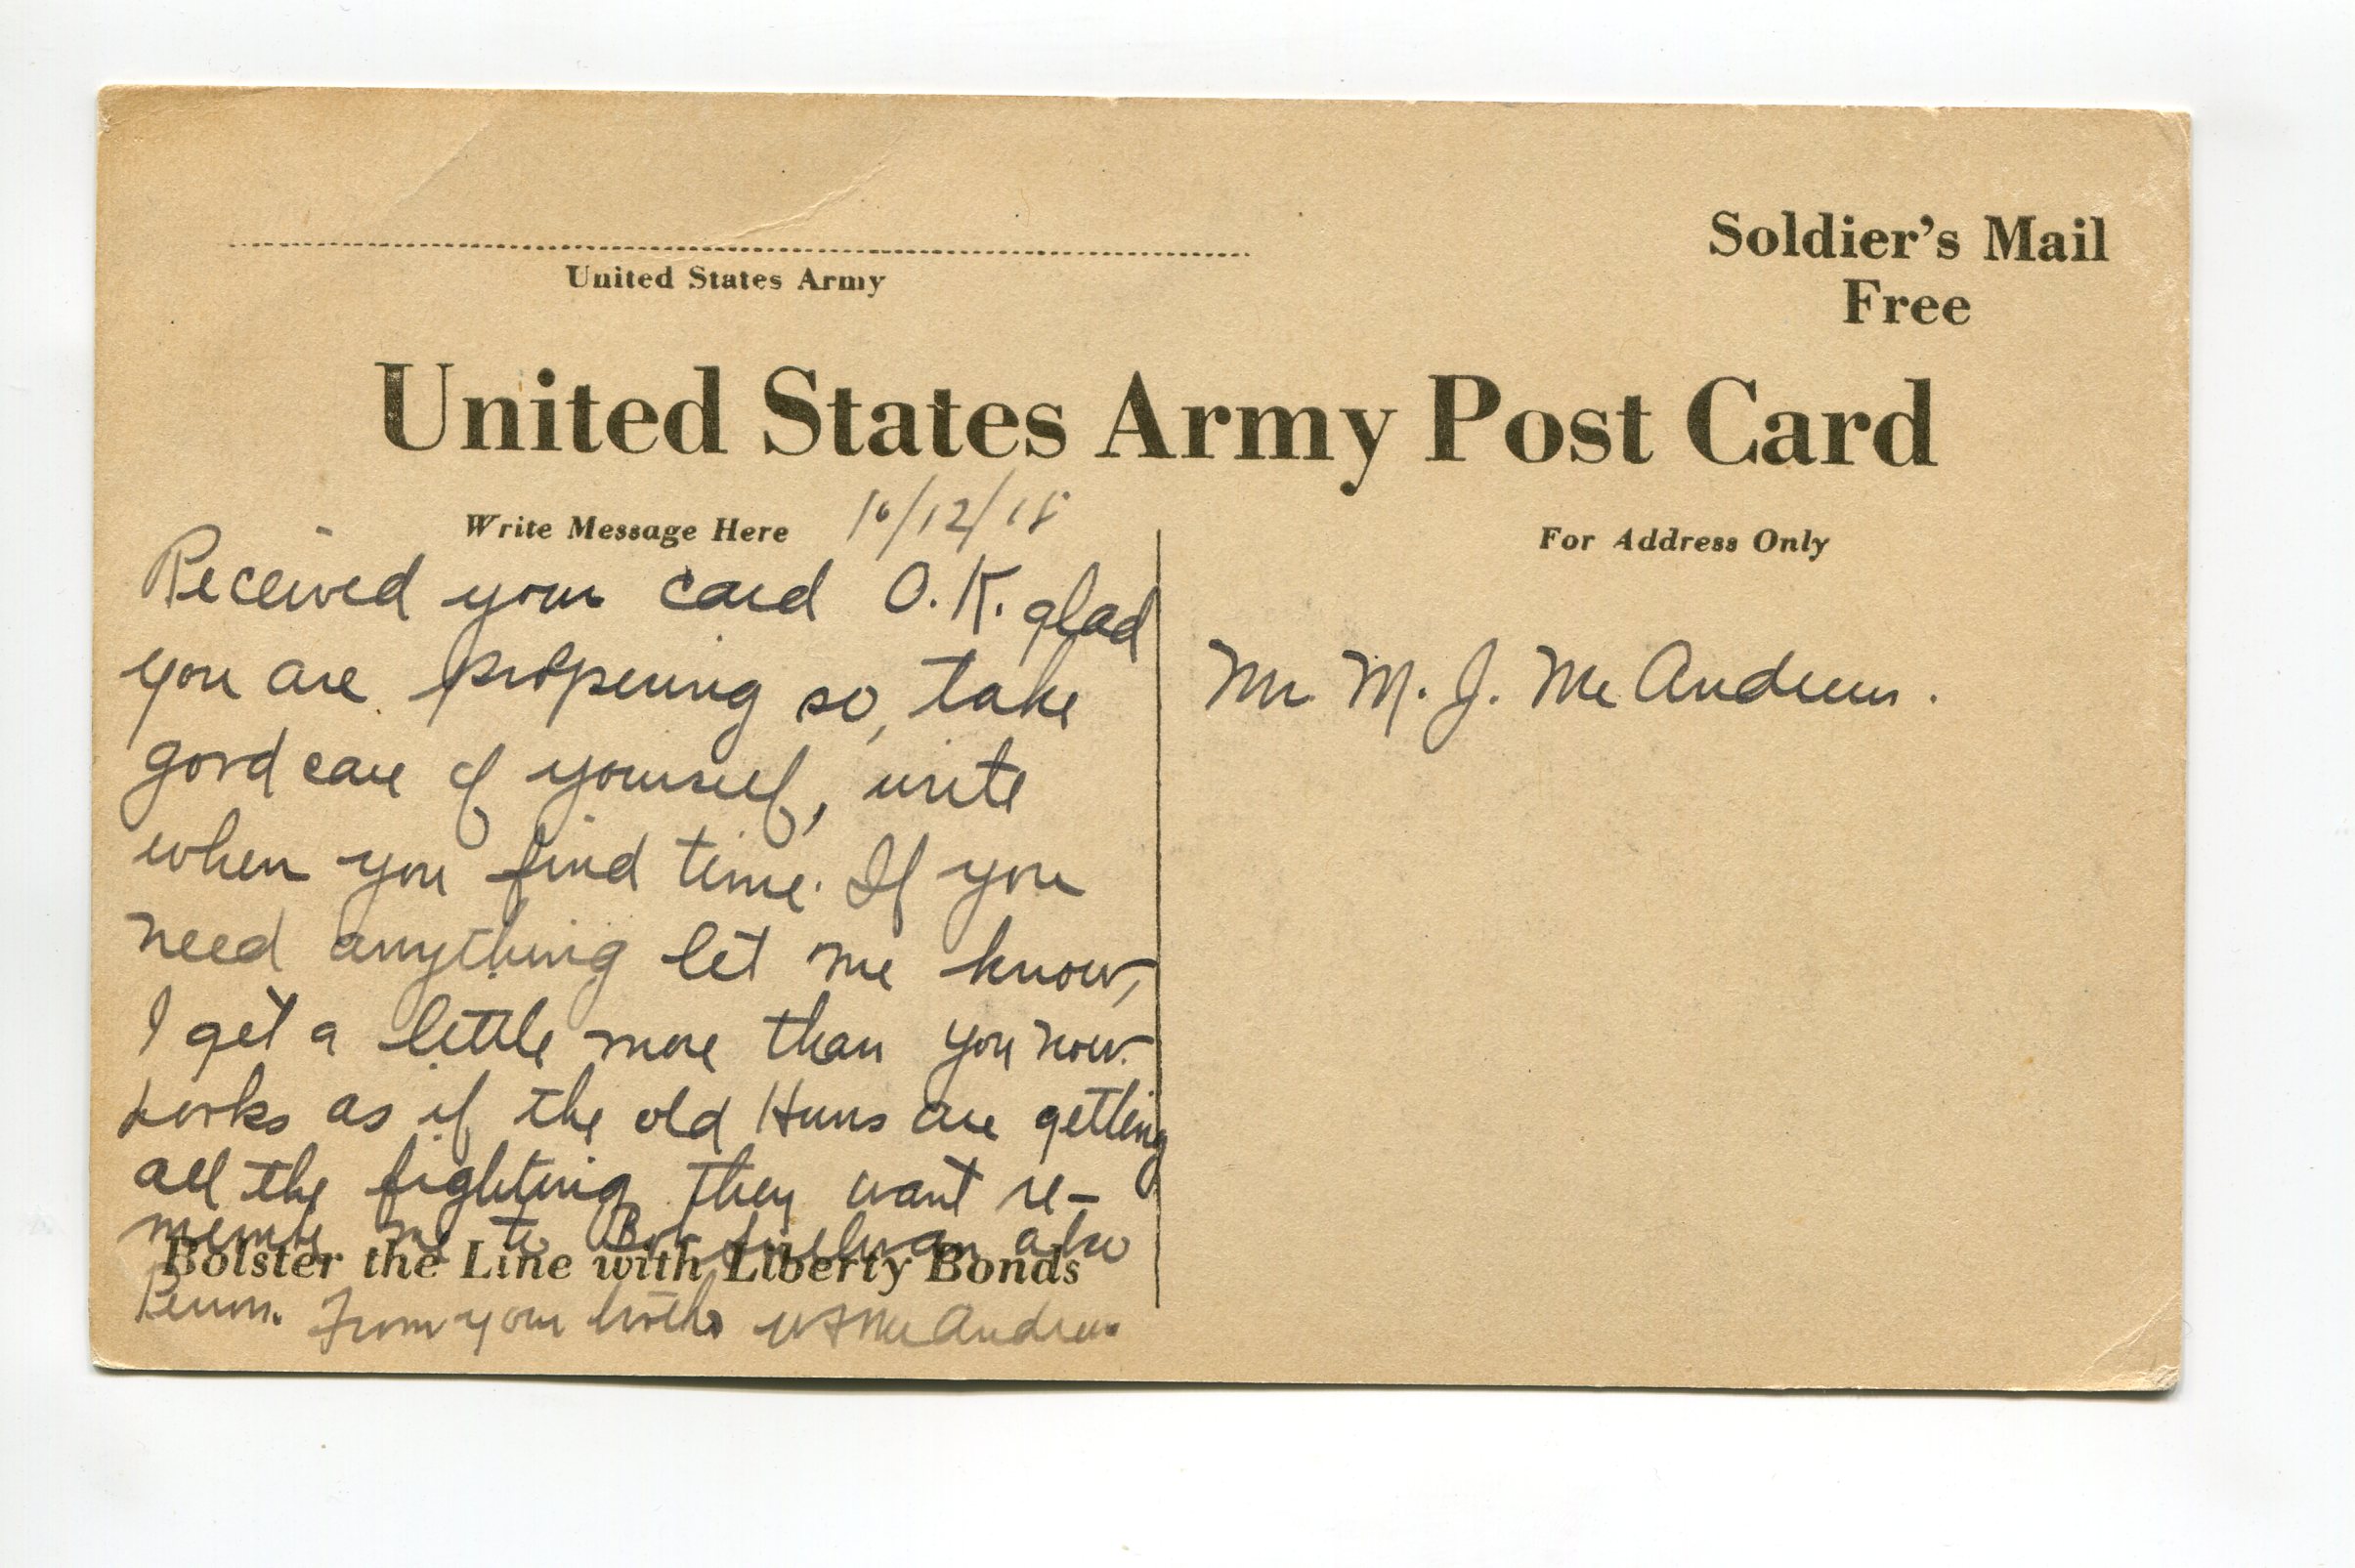 United States Army
Soldier's Mail
Free
United States Army Post Card
Write Message Here
10/12/18
For Address Only
Received your card O.K. glad
you are prospering so, take
good care of yourself, write
when you find time. If you
need anything let me know,
I get a little more than you now.
Looks as if the old Huns are getting
all the fighting they want re-
member me to also
Bolster the Line with Liberty Bonds
From your brother McAndrews
Mr M. J. McAndrews.